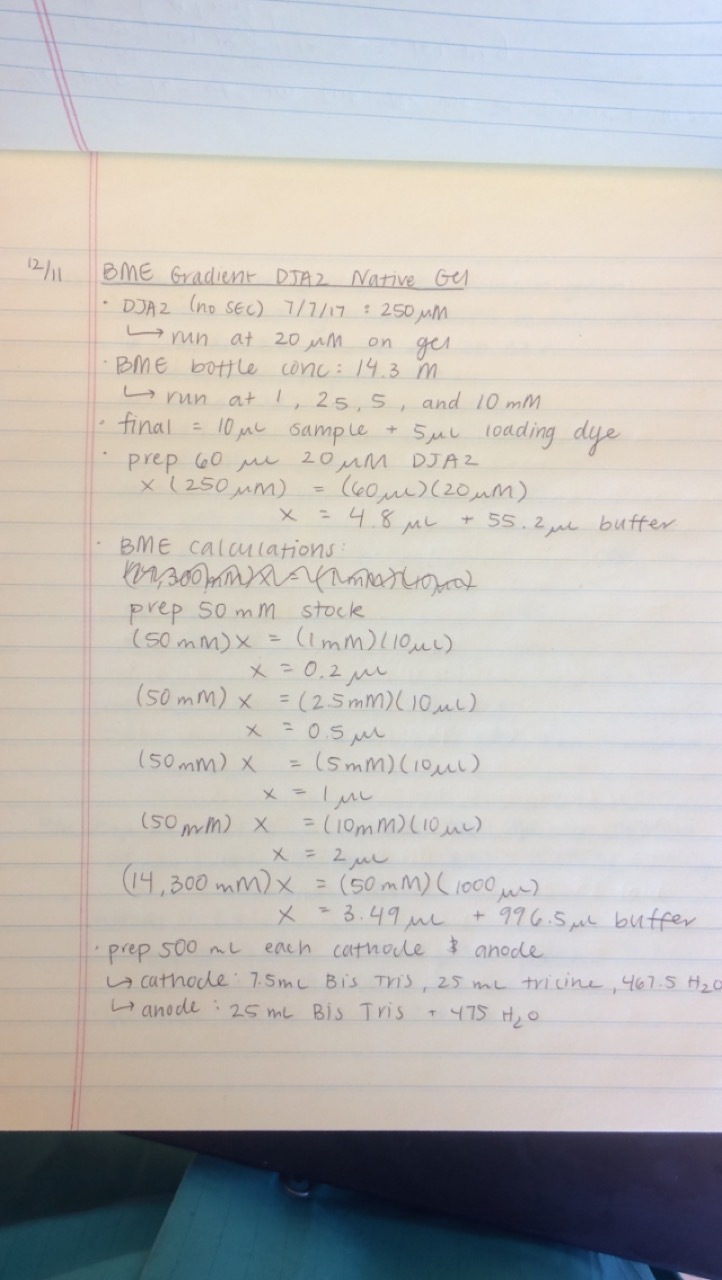 12/11 BME Gradient DJA2 Native Gel
· DJA2 (no SEC) 7/7/17 : 250 μM
↳ run at 20 μM on gel
· BME bottle conc: 14.3 M
↳ run at 1, 2.5, 5, and 10 mM
· final = 10 μL sample + 5 μL loading dye
· prep 60 μL 20 μM DJA2
x (250 μM) = (60 μL)(20 μM)
x = 4.8 μL + 55.2 μL buffer
· BME calculations:
prep 50 mM stock
(50 mM) x = (1 mM)(10 μL)
x = 0.2 μL
(50 mM) x = (2.5 mM)(10 μL)
x = 0.5 μL
(50 mM) x = (5 mM)(10 μL)
x = 1 μL
(50 mM) x = (10 mM)(10 μL)
x = 2 μL
(14,300 mM) x = (50 mM)(1000 μL)
x = 3.49 μL + 996.5 μL buffer
· prep 500 mL each cathode & anode
↳ cathode: 7.5 mL Bis Tris, 25 mL tricine, 467.5 H₂O
↳ anode: 25 mL Bis Tris + 475 H₂O